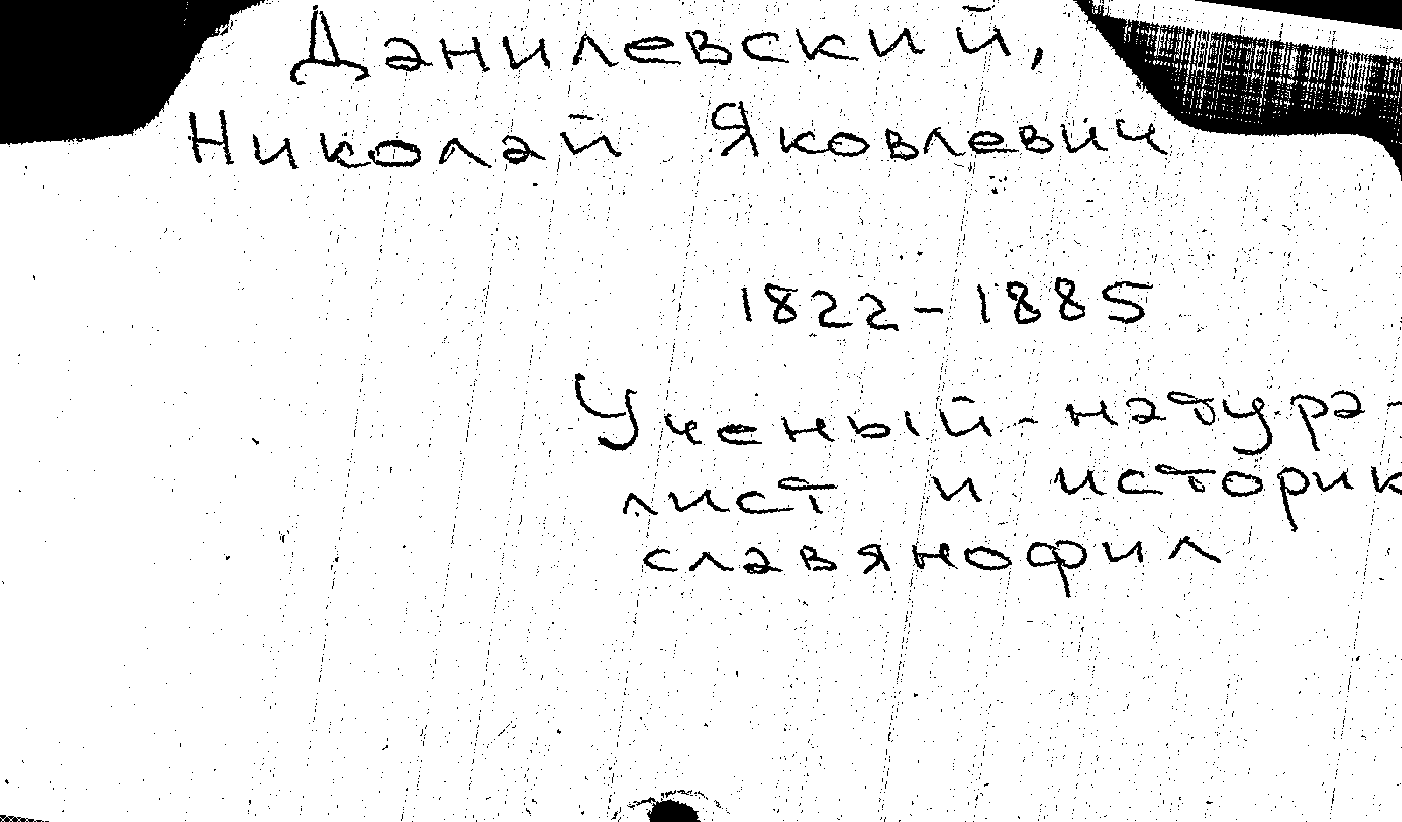 Данилевский,
Николай Яковлевич
1822-1885
Ученый-натура-
лист и историк
славянофил